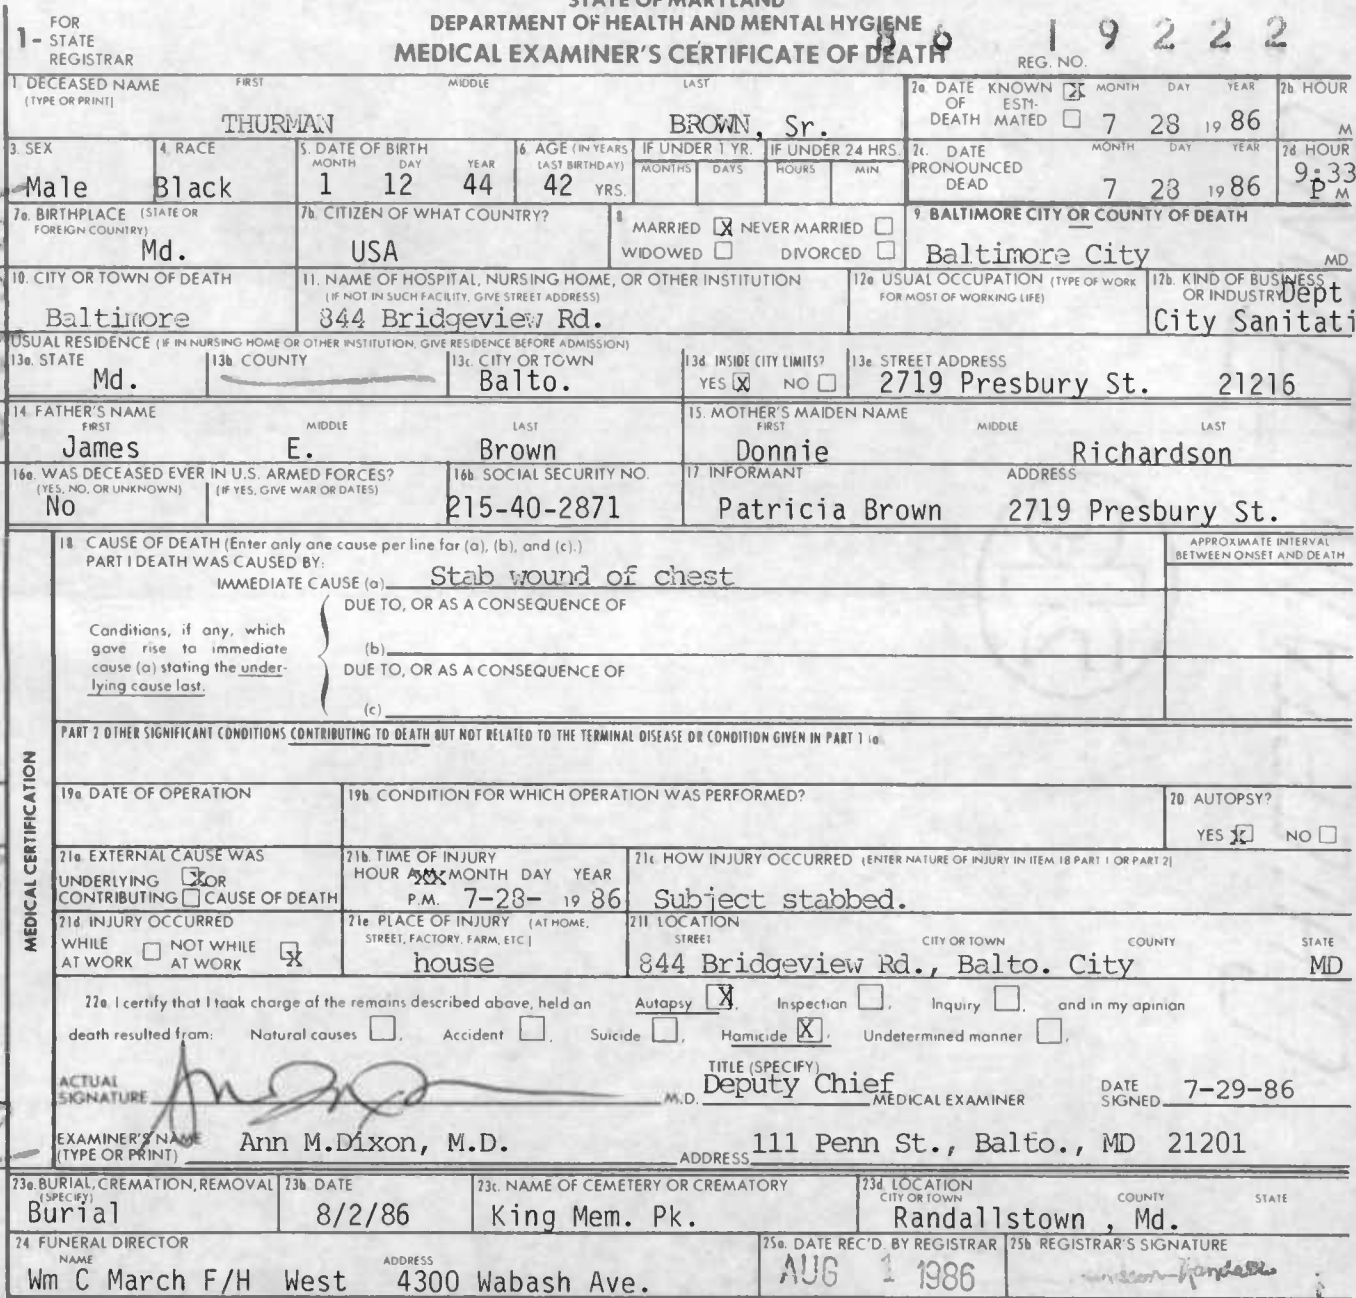 STATE OF MARYLAND
DEPARTMENT OF HEALTH AND MENTAL HYGIENE
MEDICAL EXAMINER'S CERTIFICATE OF DEATH
1- FOR STATE REGISTRAR
86 19222
REG. NO.
1 DECEASED NAME (TYPE OR PRINT) FIRST MIDDLE LAST
THURMAN BROWN, Sr.
2a. DATE OF DEATH KNOWN X ESTI-MATED MONTH DAY YEAR 7 28 19 86
2b. HOUR M
3. SEX Male
4. RACE Black
5. DATE OF BIRTH MONTH DAY YEAR 1 12 44
6. AGE (IN YEARS LAST BIRTHDAY) 42 YRS.
IF UNDER 1 YR. MONTHS DAYS
IF UNDER 24 HRS. HOURS MIN
2c. DATE PRONOUNCED DEAD MONTH DAY YEAR 7 28 19 86
2d HOUR 9:33 P M
7a. BIRTHPLACE (STATE OR FOREIGN COUNTRY) Md.
7b. CITIZEN OF WHAT COUNTRY? USA
8 MARRIED X NEVER MARRIED
WIDOWED DIVORCED
9. BALTIMORE CITY OR COUNTY OF DEATH
Baltimore City MD
10. CITY OR TOWN OF DEATH
Baltimore
11. NAME OF HOSPITAL, NURSING HOME, OR OTHER INSTITUTION
(IF NOT IN SUCH FACILITY, GIVE STREET ADDRESS)
844 Bridgeview Rd.
12a USUAL OCCUPATION (TYPE OF WORK FOR MOST OF WORKING LIFE)
12b. KIND OF BUSINESS OR INDUSTRY Dept
City Sanitati
USUAL RESIDENCE (IF IN NURSING HOME OR OTHER INSTITUTION, GIVE RESIDENCE BEFORE ADMISSION)
13a. STATE Md.
13b COUNTY
13c. CITY OR TOWN Balto.
13d INSIDE CITY LIMITS? YES X NO
13e STREET ADDRESS 2719 Presbury St. 21216
14 FATHER'S NAME FIRST MIDDLE LAST
James E. Brown
15. MOTHER'S MAIDEN NAME FIRST MIDDLE LAST
Donnie Richardson
16a. WAS DECEASED EVER IN U.S. ARMED FORCES?
(YES, NO, OR UNKNOWN) (IF YES, GIVE WAR OR DATES)
No
16b. SOCIAL SECURITY NO.
215-40-2871
17 INFORMANT ADDRESS
Patricia Brown 2719 Presbury St.
18 CAUSE OF DEATH (Enter only one cause per line for (a), (b), and (c).)
PART I DEATH WAS CAUSED BY:
IMMEDIATE CAUSE (a) Stab wound of chest
APPROXIMATE INTERVAL BETWEEN ONSET AND DEATH
DUE TO, OR AS A CONSEQUENCE OF
Conditions, if any, which gave rise to immediate cause (a) stating the under-lying cause last.
(b)
DUE TO, OR AS A CONSEQUENCE OF
(c)
PART 2 OTHER SIGNIFICANT CONDITIONS CONTRIBUTING TO DEATH BUT NOT RELATED TO THE TERMINAL DISEASE OR CONDITION GIVEN IN PART 1 (a
MEDICAL CERTIFICATION
19a. DATE OF OPERATION
19b CONDITION FOR WHICH OPERATION WAS PERFORMED?
20 AUTOPSY?
YES X NO
21a. EXTERNAL CAUSE WAS
UNDERLYING X OR
CONTRIBUTING CAUSE OF DEATH
21b. TIME OF INJURY
HOUR MONTH DAY YEAR
P.M. 7-28- 19 86
21c HOW INJURY OCCURRED (ENTER NATURE OF INJURY IN ITEM 18 PART 1 OR PART 2)
Subject stabbed.
21d INJURY OCCURRED
WHILE AT WORK NOT WHILE AT WORK X
21e PLACE OF INJURY (AT HOME, STREET, FACTORY, FARM, ETC.)
house
21f LOCATION STREET CITY OR TOWN COUNTY STATE
844 Bridgeview Rd., Balto. City MD
22a I certify that I took charge of the remains described above, held an Autopsy X, Inspection, Inquiry, and in my opinion
death resulted from: Natural causes, Accident, Suicide, Homicide X, Undetermined manner.
ACTUAL SIGNATURE M.D.
TITLE (SPECIFY) Deputy Chief MEDICAL EXAMINER
DATE SIGNED 7-29-86
EXAMINER'S NAME (TYPE OR PRINT) Ann M.Dixon, M.D.
ADDRESS 111 Penn St., Balto., MD 21201
23a. BURIAL, CREMATION, REMOVAL (SPECIFY) Burial
23b DATE 8/2/86
23c. NAME OF CEMETERY OR CREMATORY King Mem. Pk.
23d LOCATION CITY OR TOWN COUNTY STATE
Randallstown , Md.
24 FUNERAL DIRECTOR NAME ADDRESS
Wm C March F/H West 4300 Wabash Ave.
25a. DATE REC'D. BY REGISTRAR AUG 1 1986
25b REGISTRAR'S SIGNATURE